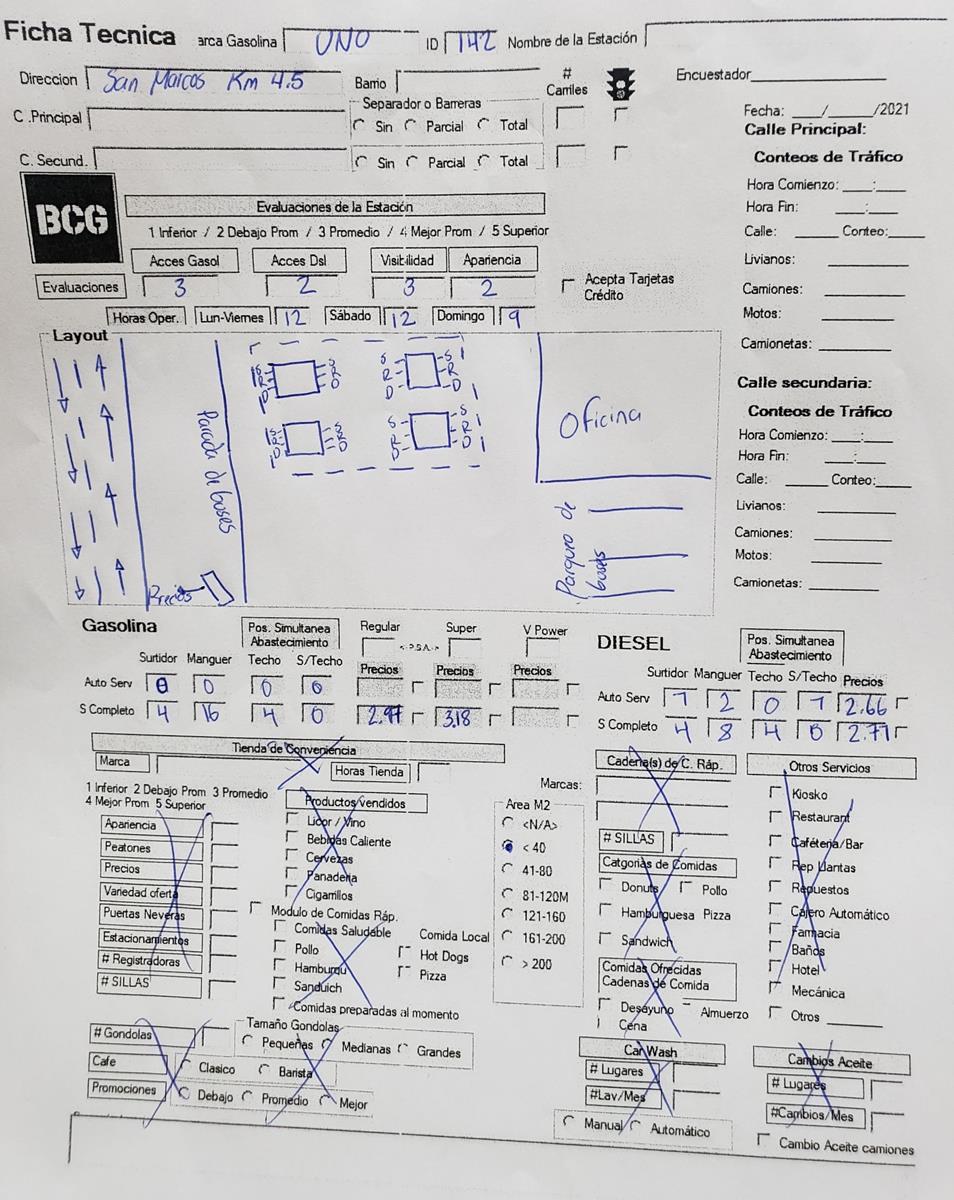 Ficha Tecnica arca Gasolina UNO ID 142 Nombre de la Estación
Direccion San Marcos Km 4.5 Barrio # Carriles Encuestador
C .Principal Separador o Barreras Sin Parcial Total
C. Secund. Sin Parcial Total
Fecha: ___/_____/2021
Calle Principal:
Conteos de Tráfico
Hora Comienzo: ___:____
Hora Fin: ___:____
Calle: ______ Conteo:_____
Livianos:
Camiones:
Motos:
Camionetas:
BCG
Evaluaciones de la Estación
1 Inferior / 2 Debajo Prom / 3 Promedio / 4 Mejor Prom / 5 Superior
Acces Gasol Acces Dsl Visibilidad Apariencia
Evaluaciones 3 2 3 2 Acepta Tarjetas Crédito
Horas Oper. Lun-Viernes 12 Sábado 12 Domingo 9
Layout
S S
R R
D D
S S
R R
D D
S S
R R
D D
S S
R R
D D
Parada de buses
Oficina
Parqueo de buses
Precios
Calle secundaria:
Conteos de Tráfico
Hora Comienzo: ___:____
Hora Fin: ___:____
Calle: ______ Conteo:_____
Livianos:
Camiones:
Motos:
Camionetas:
Gasolina Pos. Simultanea Abastecimiento Regular Super V Power
<-P.S.A.->
Surtidor Manguer Techo S/Techo Precios Precios Precios
Auto Serv 0 0 0 0
S Completo 4 16 4 0 2.97 3.18
DIESEL Pos. Simultanea Abastecimiento
Surtidor Manguer Techo S/Techo Precios
Auto Serv 1 2 0 1 2.66
S Completo 4 8 4 0 2.71
Tienda de Conveniencia
Marca Horas Tienda
1 Inferior 2 Debajo Prom 3 Promedio
4 Mejor Prom 5 Superior
Apariencia
Peatones
Precios
Variedad oferta
Puertas Neveras
Estacionamientos
# Registradoras
# SILLAS
Productos vendidos
Licor / Vino
Bebidas Caliente
Cervezas
Panaderia
Cigarrillos
Modulo de Comidas Ráp.
Comidas Saludable Comida Local
Pollo Hot Dogs
Hamburgu Pizza
Sanduich
Comidas preparadas al momento
Marcas:
Area M2
<N/A>
< 40
41-80
81-120M
121-160
161-200
> 200
# Gondolas Tamaño Gondolas
Pequeñas Medianas Grandes
Cafe Clasico Barista
Promociones Debajo Promedio Mejor
Cadena(s) de C. Ráp.
# SILLAS
Catgorias de Comidas
Donuts Pollo
Hamburguesa Pizza
Sandwich
Comidas Ofrecidas
Cadenas de Comida
Desayuno Almuerzo
Cena
Car Wash
# Lugares
#Lav/Mes
Manual Automático
Otros Servicios
Kiosko
Restaurant
Cafétería/Bar
Rep Llantas
Repuestos
Cajero Automático
Farmacia
Baños
Hotel
Mecánica
Otros
Cambios Aceite
# Lugares
#Cambios/Mes
Cambio Aceite camiones